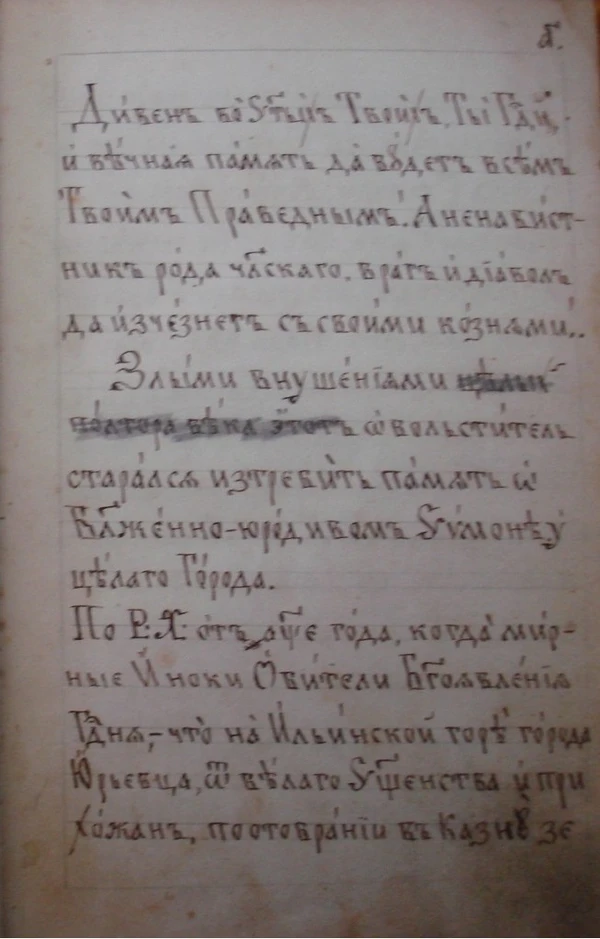 а҃.
Ди́венъ во Ст҃ы́хъ Твои́хъ, Ты̀ Гдⷭ҇и,
и҆ вѣ́чная па́мять да бꙋ́детъ всѣ́мъ
Твои́мъ Пра́веднымъ! А ненави́ст-
никъ ро́да чл҃скаго, вра́гъ и҆ дїа́волъ
да и҆зче́знетъ съ свои́ми ко́знями!..
Злы́ми внуше́нїями цѣлы́и
по́лтора вѣ́ка э́тотъ ѡ҆больсти́тель
стара́лся изтреби́ть па́мять ѡ҆
Бл҃же́нно-юро́дивомъ Сѵ́монѣ у
цѣ́лаго Го́рода.
По Р: Х: о́тъ ‚аѱ҃е го́да, когда̀ ми́р-
ные И҆́ноки Ѻ҆би́тели Бг҃оявле́нїя
Гдⷭ҇ня,-что̀ на̀ И҆льи́нской горѣ̀ го́рода
Ю҆́рьевца, ѿ бѣ́лаго Сщ҃енства и҆ при
хо́жанъ, по отобра́нїи въ Казнꙋ̀ зе